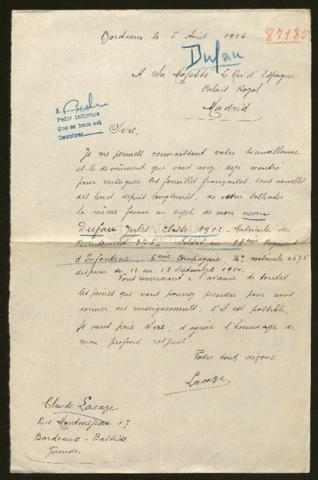 Bordeaux le 5 Avril 1916
87185
Dufau
A Sa Majesté Le Roi d'Espagne
Palais Royal
Madrid
A
Pedir informes
Que se haga así
Devolver
Sire,
Je me permets connaissant votre bienveillance
et le dévouement que vous avez déjà montré
pour renseigner les familles françaises sans nouvelles
des leurs depuis longtemps, de solliciter
la même faveur au sujet de mon neveu
Dufau Jules, classe 1912 - Matricule de
recrutement Soldat au 18ème Régiment
d'Infanterie, 6ème Compagnie, No matricule 4575
disparu du 12 au 13 Septembre 1914.
Vous remerciant à l'avance de toutes
les peines que vous pourrez prendre pour nous
donner des renseignements, s'il est possible,
Je vous prie, Sire, d'agréer l'hommage de
mon profond respect
Votre tout dévoué
Lacaze
Claude Lacaze
Rue Montméjean 17
Bordeaux - Bastide
Gironde